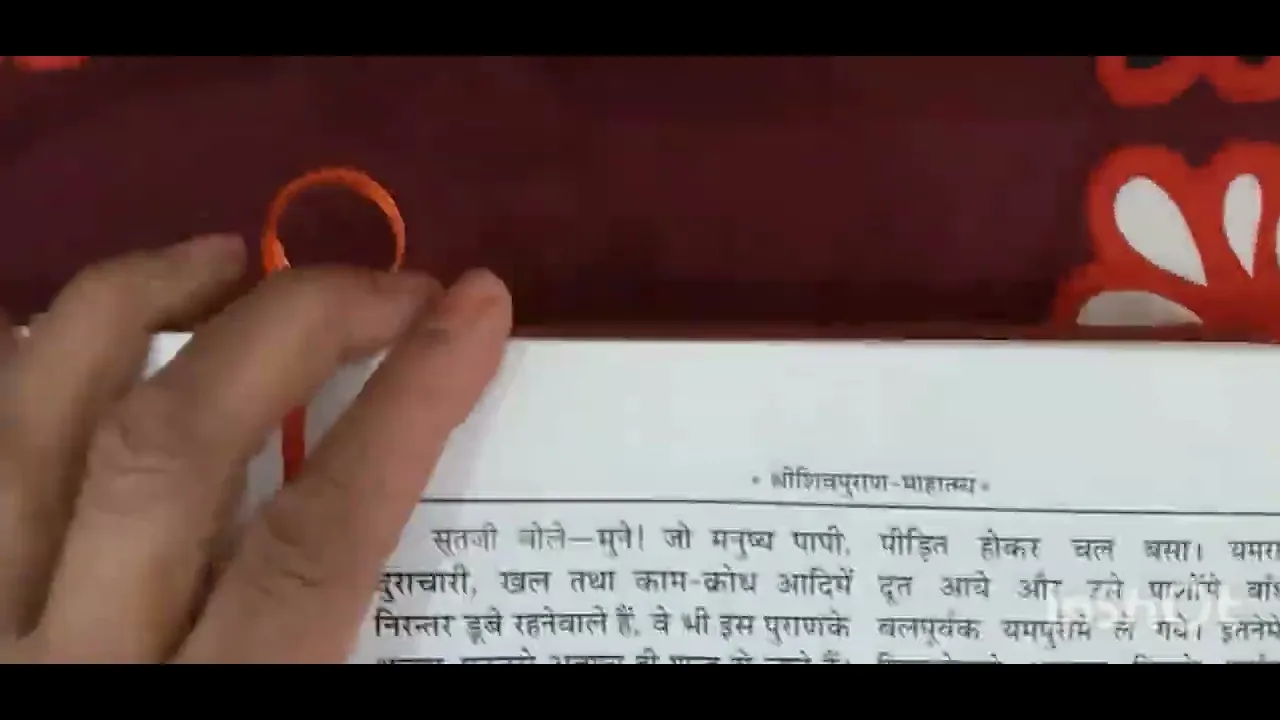 * श्रीशिवपुराण-माहात्म्य *
सूतजी बोले—मुने! जो मनुष्य पापी,
दुराचारी, खल तथा काम-क्रोध आदिमें
निरन्तर डूबे रहनेवाले हैं, वे भी इस पुराणके
पीड़ित होकर चल बसा। यमरा
दूत आये और उसे पाशोंसे बाँध
बलपूर्वक यमपुरीमें ले गये। इतनेमें
InShOt